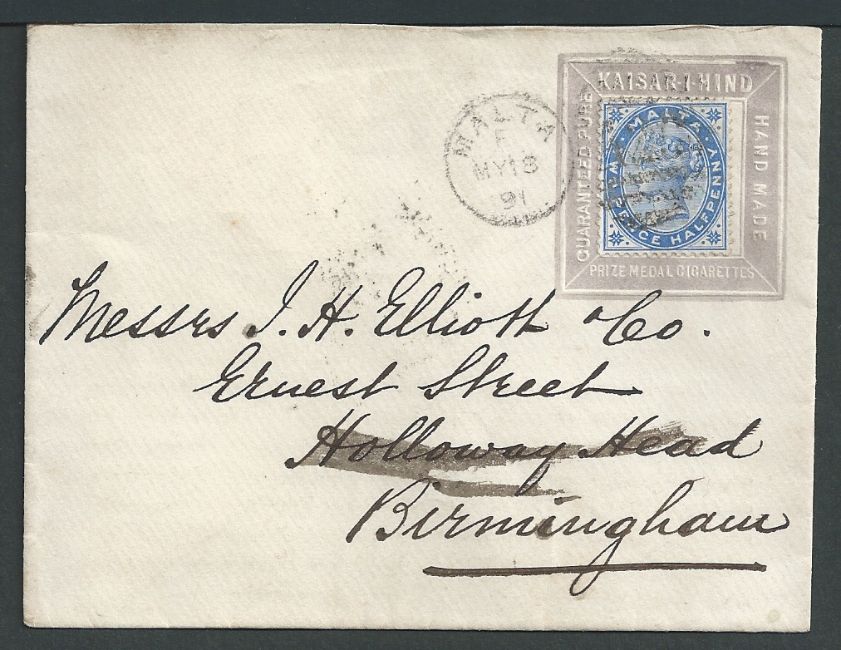 KAISAR-I-HIND
GUARANTEED PURE
HAND MADE
PRIZE MEDAL CIGARETTES
MALTA
TWO PENCE HALFPENNY
MALTA
F
MY 18
91
Messrs J. H. Elliott & Co.
Ernest Street
Holloway Head
Birmingham